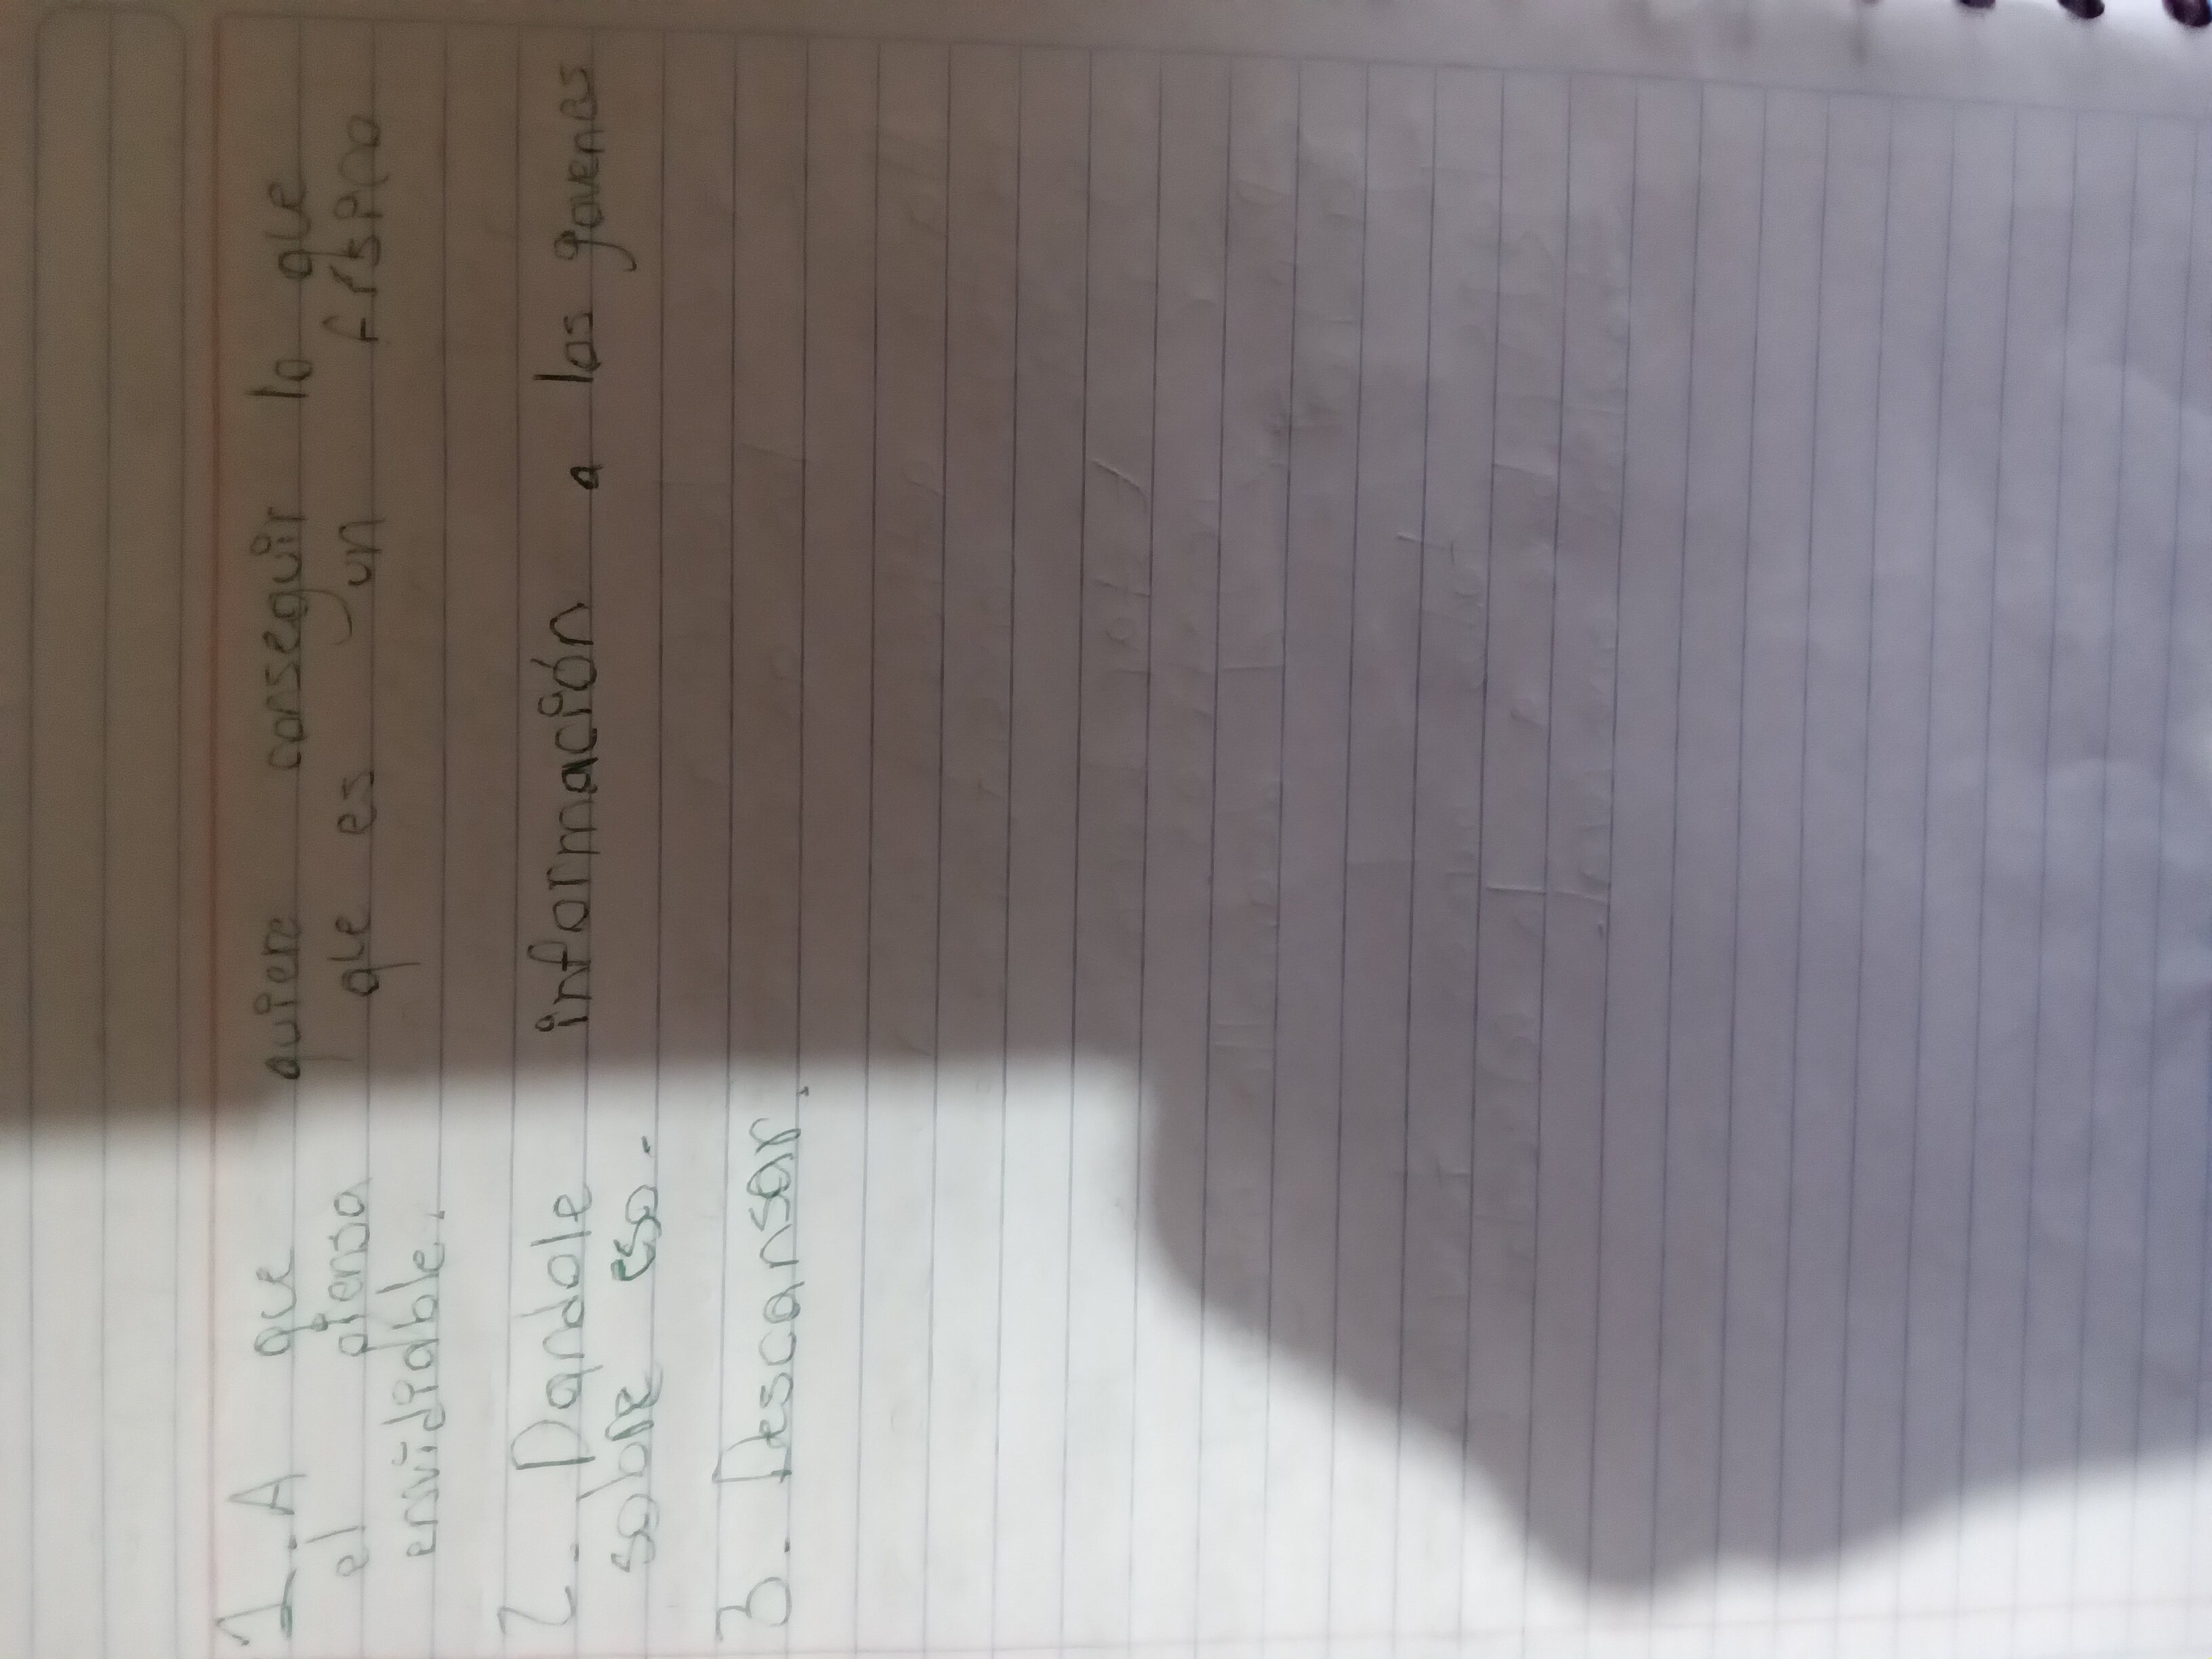 1-. A que quiere conseguir lo que
el piensa que es un fisico
envidiable.
2-. Dandole información a los govenes
sobre eso.
3-. Descansar.